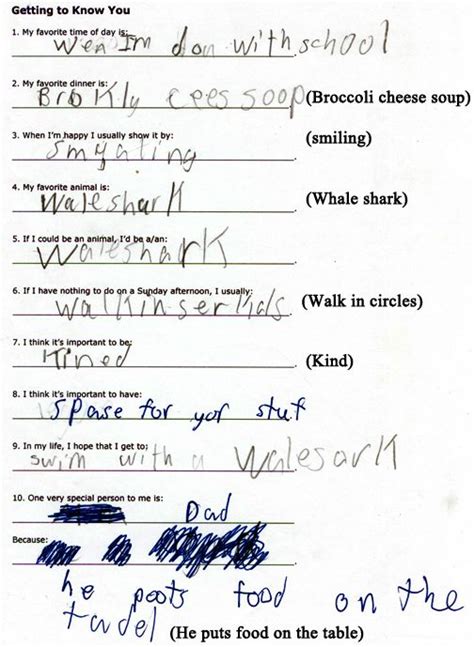 Getting to Know You
1. My favorite time of day is:
Wen Im don with school
2. My favorite dinner is:
Brokly cees soop (Broccoli cheese soup)
3. When I'm happy I usually show it by:
(smiling)
4. My favorite animal is:
Waleshark (Whale shark)
5. If I could be an animal, I'd be a/an:
Waleshark
6. If I have nothing to do on a Sunday afternoon, I usually:
walkinserkids. (Walk in circles)
7. I think it's important to be:
Kined (Kind)
8. I think it's important to have:
spase for yor stuf
9. In my life, I hope that I get to:
swim with a Walesark
10. One very special person to me is:
Dad
Because:
he poots food on the
tadel (He puts food on the table)